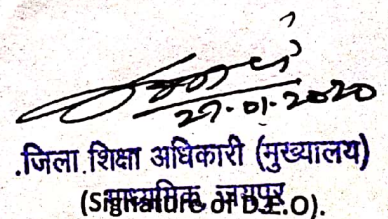 27-01-2020
.जिला शिक्षा अधिकारी (मुख्यालय)
माध्यमिक, जयपुर
(Signature of D.E.O).